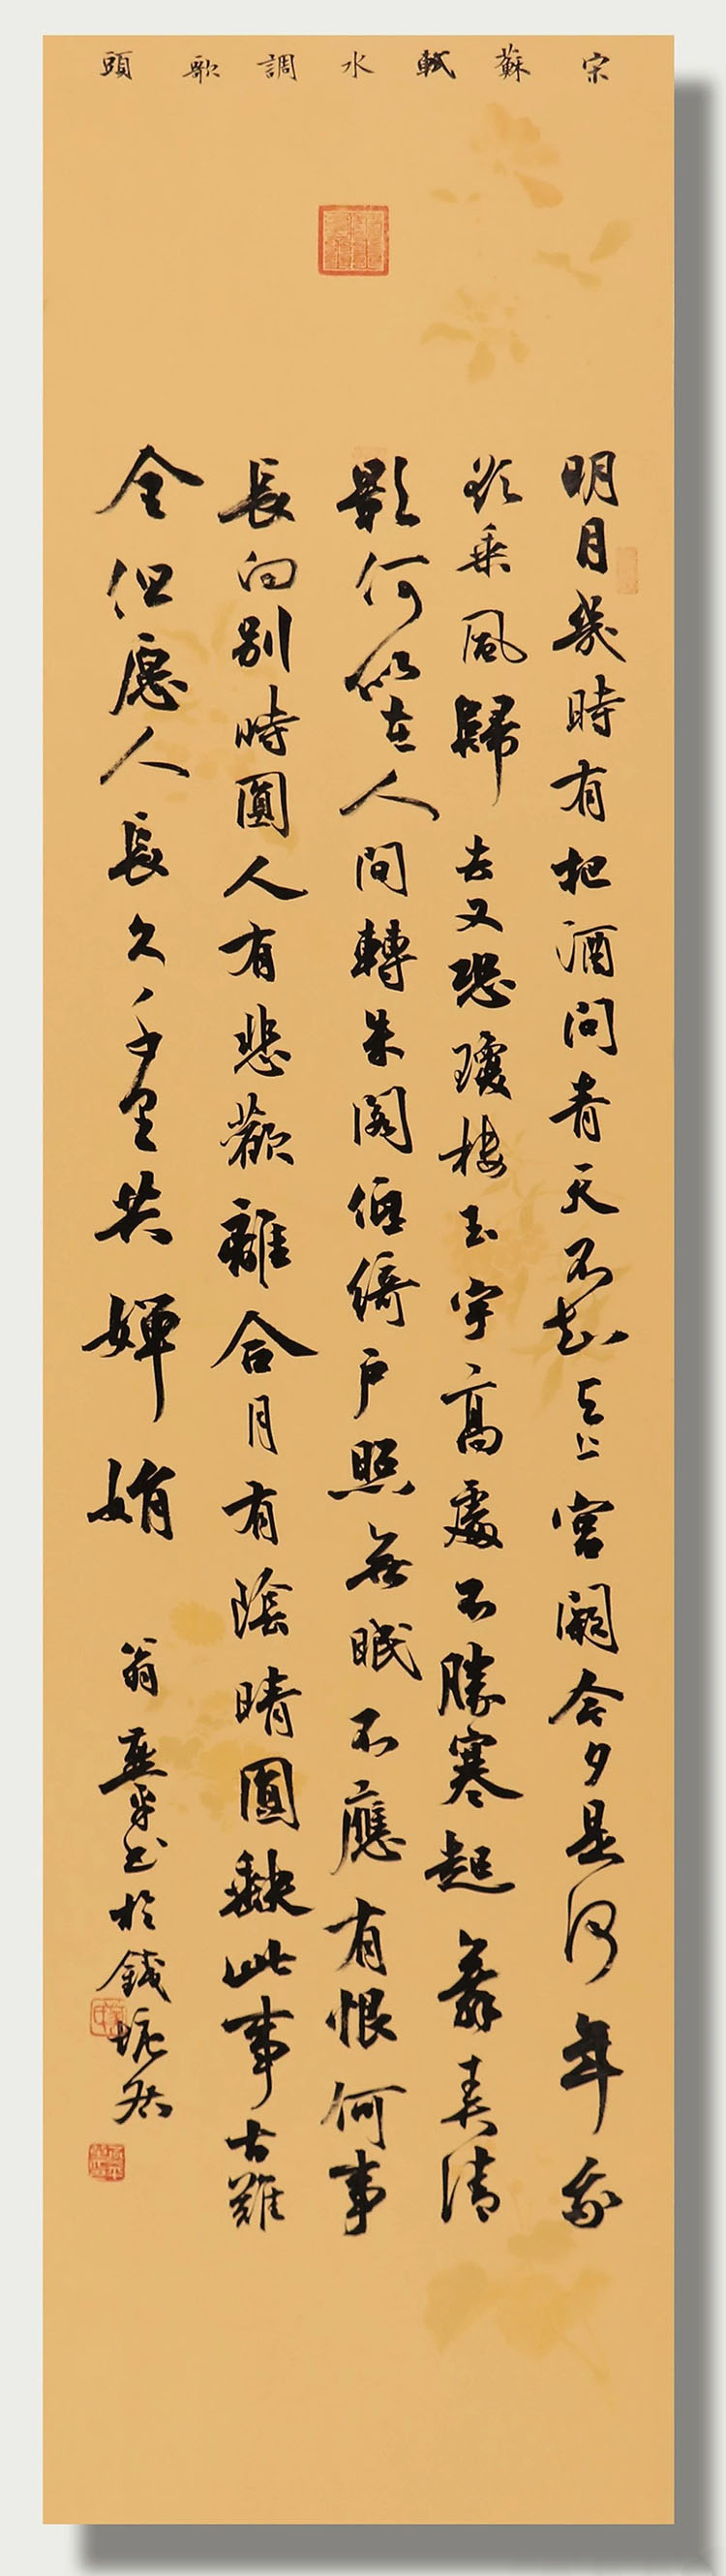 宋蘇軾水調歌頭
明月幾時有把酒問青天不知天上宮闕今夕是何年我
欲乘風歸去又恐瓊樓玉宇高處不勝寒起舞弄清
影何似在人間轉朱閣低綺戶照無眠不應有恨何事
長向別時圓人有悲歡離合月有陰晴圓缺此事古難
全但愿人長久千里共嬋娟 翁燕平书於錢居